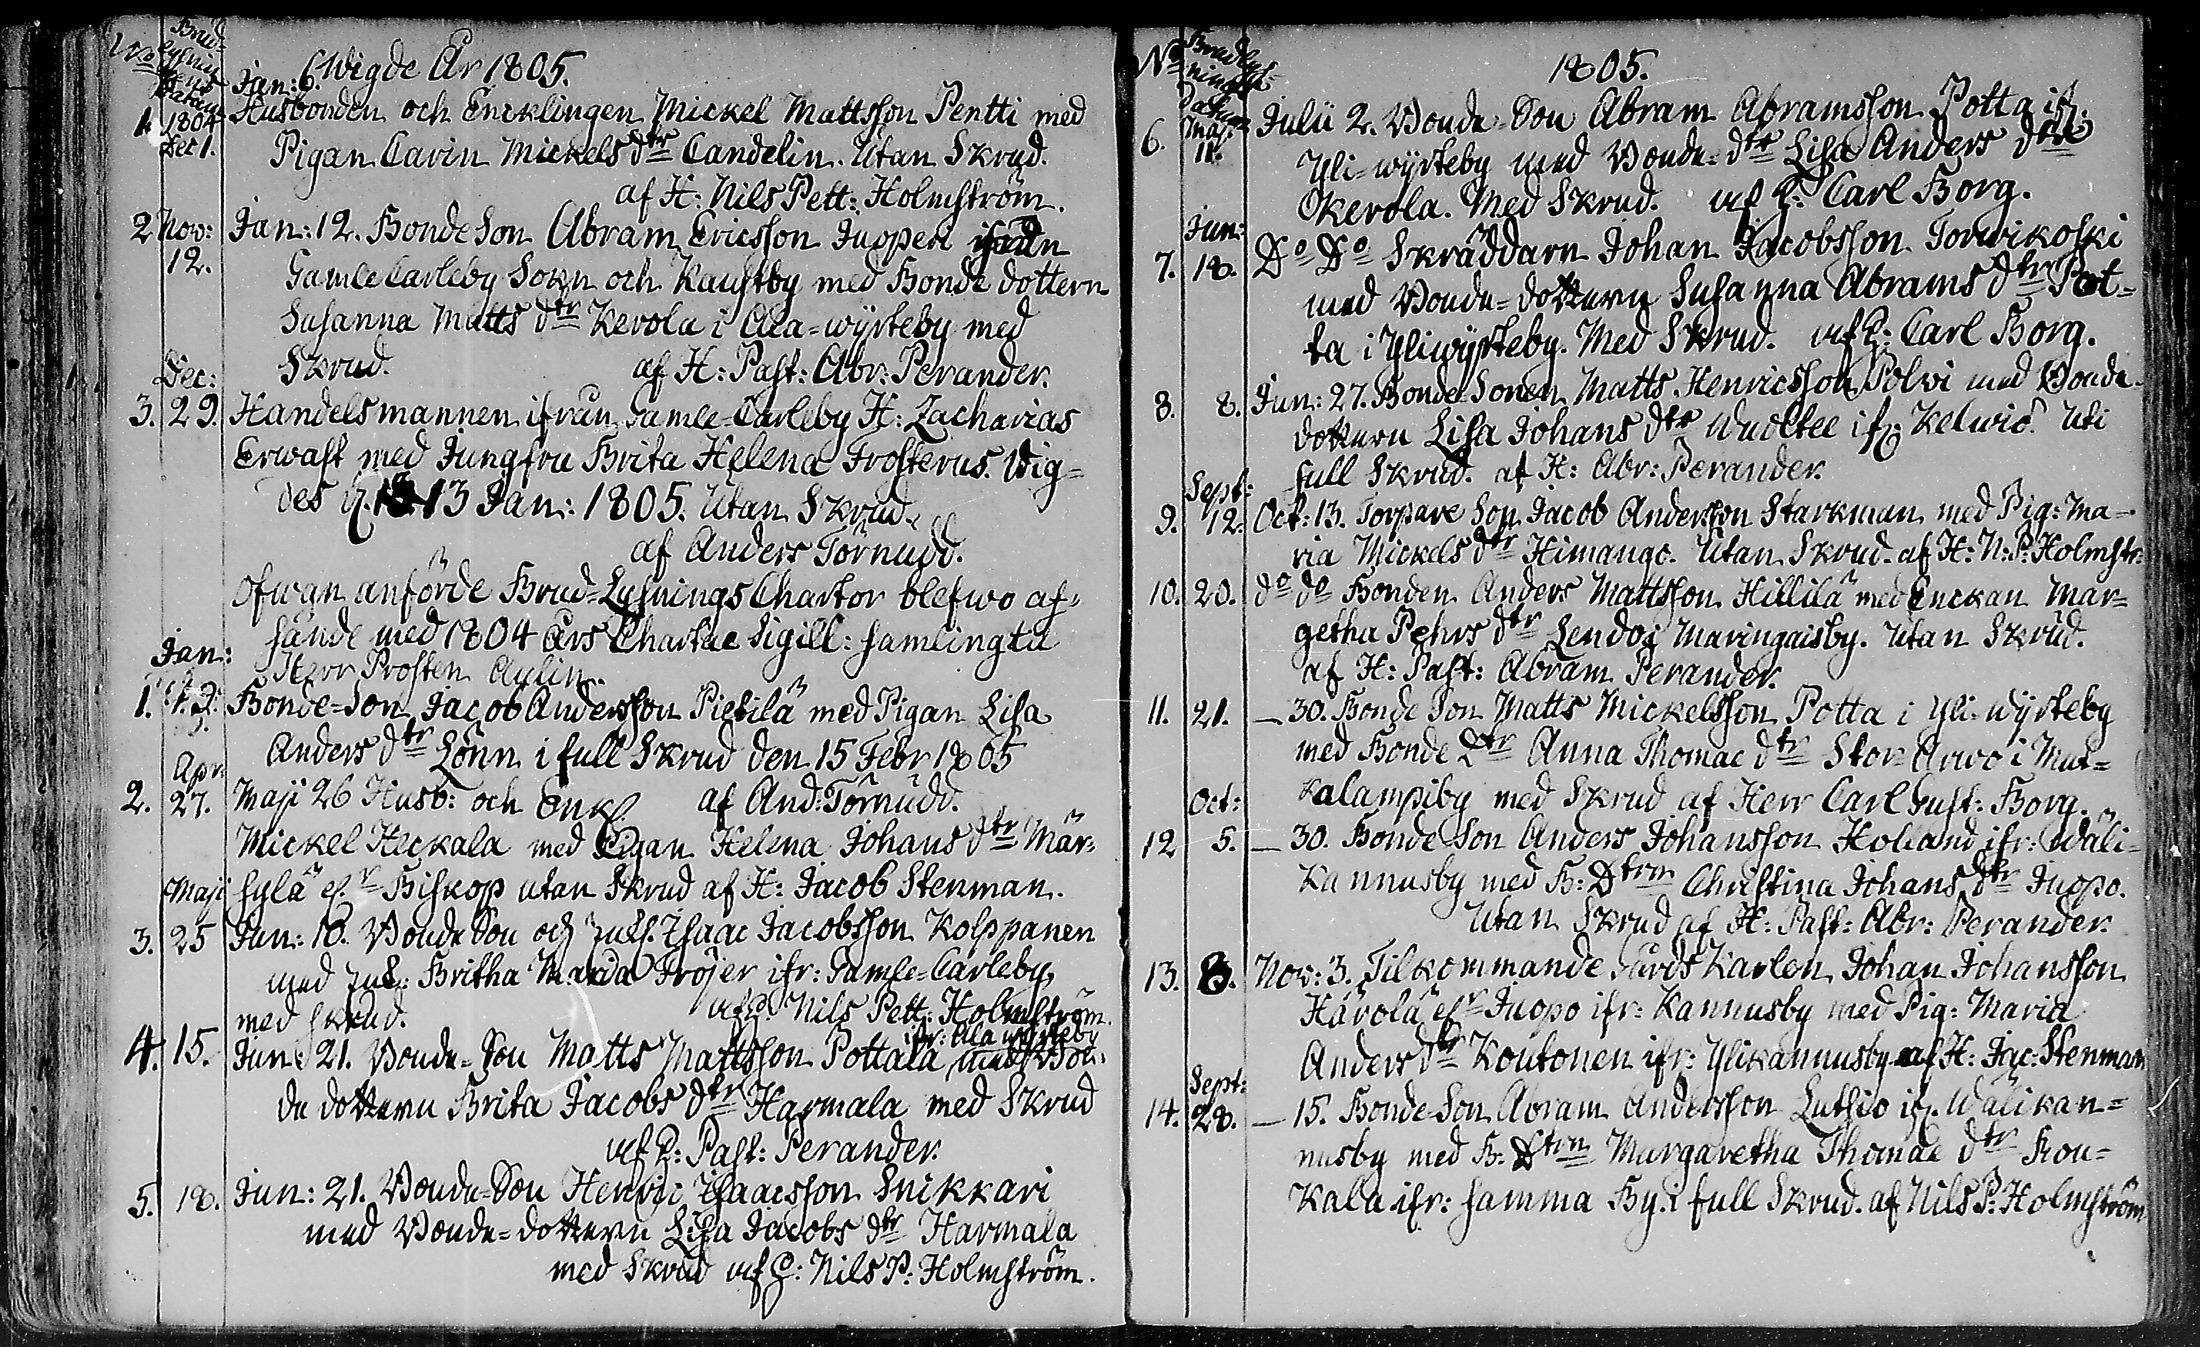 No Brudlysnings Datum
Wigde År 1805.
Jan: 6.
1. 1804 Dec 1. Husbonden och Encklingen Mickel Mattsson Pentti med
Pigan Carin Mickels dtr Candelin. Utan Skrud.
af H: Nils Pett: Holmström.
2 Nov: 12. Jan: 12. Bonde Son Abram Ericsson Juopen ifrån
Gamle Carleby Sokn och Kaustby med Bonde dottern
Susanna Matts dtr Kerola i Ala=wyrkeby med
Skrud. af H: Past: Abr: Perander.
Dec:
3. 29. Handelsmannen ifrån Gamle-Carleby H: Zacharias
Erwast med Jungfru Brita Helena Frosterus. Wig=
des d. 13 Jan: 1805. Utan Skrud.
af Anders Törnudd.
Ofwan anförde Brud=Lysnings Chartor blefwo af=
sände med 1804 års Chartae Sigill: samling til
Herr Prosten Aulin.
Jan:
1. Bonde=Son Jacob Andersson Pietilä med Pigan Lisa
Anders dtr Lönn i full Skrud den 15 Febr 1805
Apr.
2. 27. Maji 26 Husb: och Enkl. af And: Törnudd.
Mickel Heckala med Pigan Helena Johans dtr Mär=
Maji sylä elr Biskop utan Skrud af H: Jacob Stenman.
3. 25 Jun: 10. Bonde Son och Isaac Jacobsson Kolppanen
med Britha Maria Fröjer ifr: Gamle-Carleby
med skrud. af H: Nils Pett: Holmström.
ifr: Ala wyrkeby
4. 15. Jun: 21. Bonde=Son Matts Mattsson Pottala med Bon=
de dottern Brita Jacobs dtr Harmala med Skrud
af H: Past: Perander.
5. 18. Jun: 21. Bonde=Son Henric Isaacsson Snikkari
med Bonde=dottern Lisa Jacobs dtr Harmala
med Skrud af H: Nils P: Holmström.
No Brudlysnings Datum
1805.
6. Maj. 11. Julii 2. Bonde=Son Abram Abramsson Potta ifr.
Yli=wyrkeby med Bonde=dtr Lisa Anders dtr
Kerola. Med Skrud. af H: Carl Borg.
Jun:
7. 18. Do Do Skräddarn Johan Jacobsson Torwikoski
med Bonde=dottern Susanna Abrams dtr Pot=
ta i Yliwyrkeby. Med Skrud. af H: Carl Borg.
8. 8. Jun: 27. Bonde Sonen Matts Henricsson Polwi med Bonde
dottern Lisa Johans dtr ifr. Kelwiå. Uti
full Skrud. af H: Abr: Perander.
Sept:
9. 12. Oct: 13. Torpare Son Jacob Andersson Starkman med Pig: Ma=
ria Mickels dtr Himango. Utan Skrud. af H: N: P: Holmstr:
10. 20. do do Bonden Anders Mattsson Hillilä med Enckan Mar=
getha Pehrs dtr Lendo i Maringaisby. Utan Skrud.
af H: Past: Abram Perander.
11. 21. _ 30. Bonde Son Matts Mickelsson Potta i Yli-wyrkeby
med Bonde Dtr Anna Thomae dtr Stor=Arwo i Mut=
Oct: kalampiby med Skrud af Herr Carl Gust: Borg.
12 5. _ 30. Bonde Son Anders Johansson Holland ifr: Wäli=
kannusby med B: Dtrn Christina Johans dtr Juopo.
Utan Skrud af H: Past: Abr: Perander.
13. 3. Nov: 3. Tilkommande Gårds Karlen Johan Johansson
Härölä elr Juopo ifr: Kannusby med Pig: Maria
Anders dtr Koutonen ifr: Ylikannusby af H: Jac: Stenman
Sept:
14. 28. _ 15. Bonde Son Abram Andersson Luthio ifr. Wälikan=
nusby med B: Dtrn Margaretha Thomae dtr Kou=
kala ifr: samma By. i full Skrud. af Nils P: Holmström